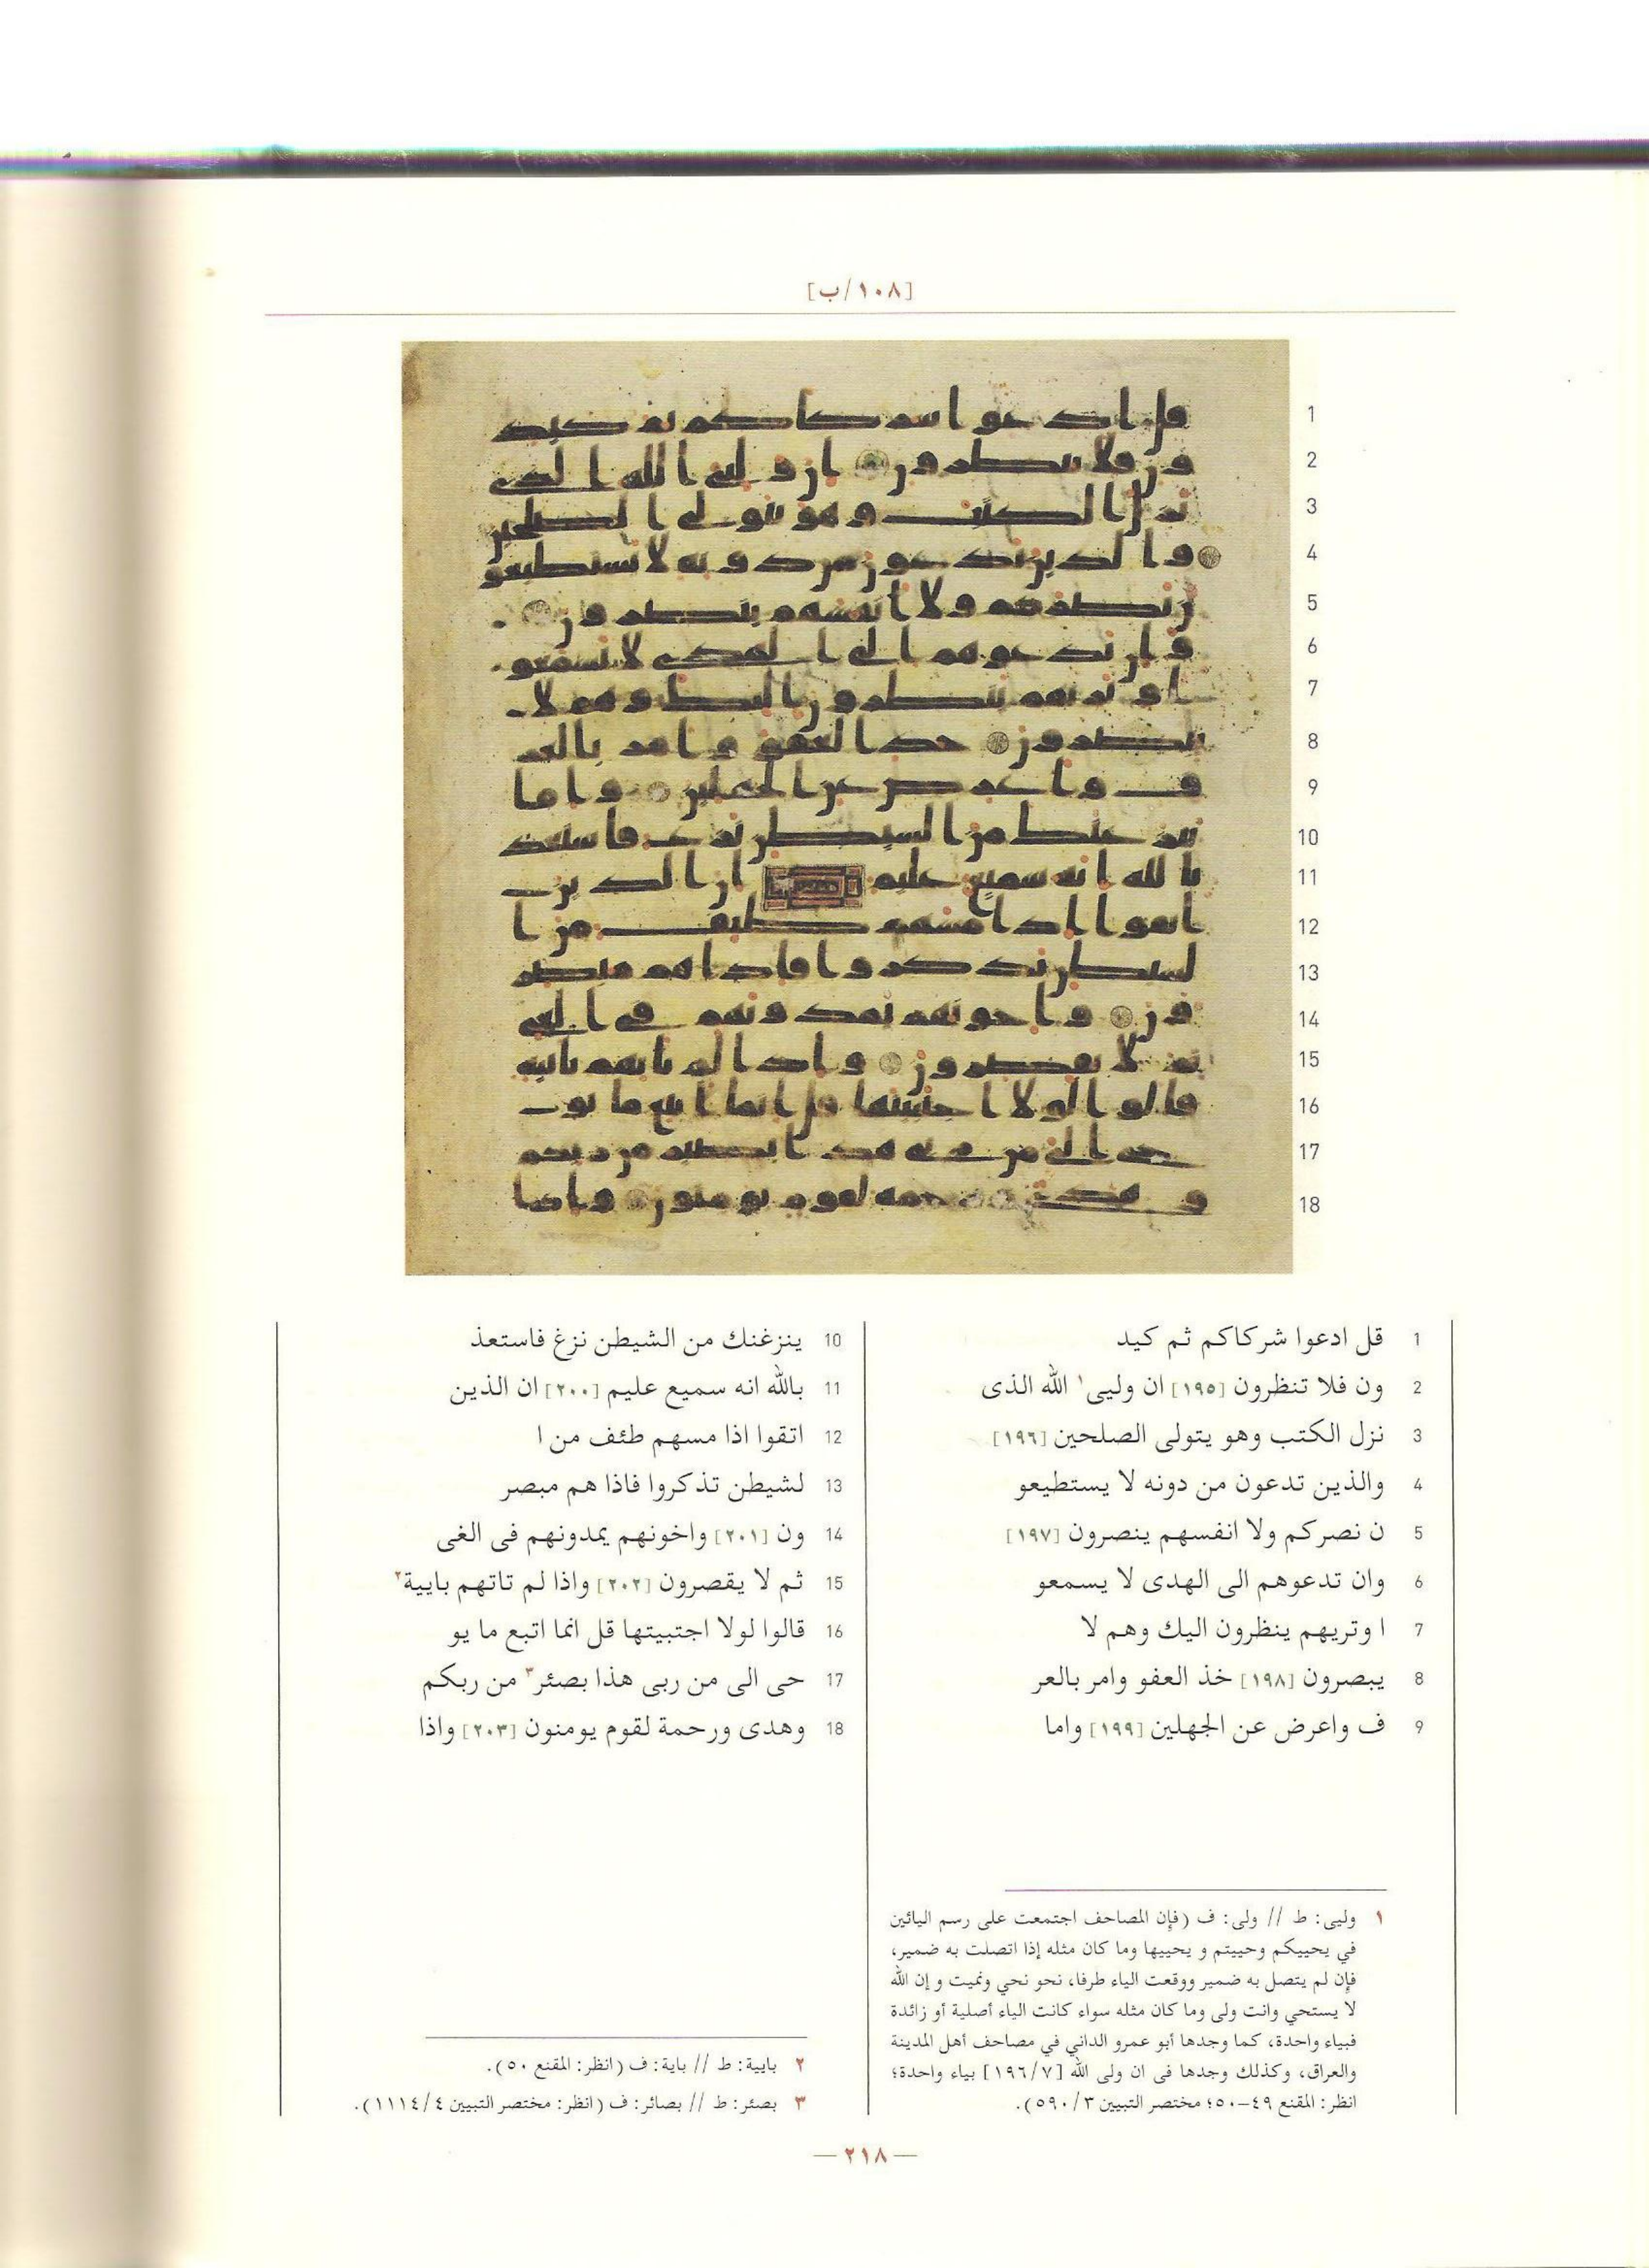 [١٠٨/ب]
1 قل ادعوا شركاكم ثم كيد
2 ون فلا تنظرون [١٩٥] ان وليى١ الله الذى
3 نزل الكتب وهو يتولى الصلحين [١٩٦]
4 والذين تدعون من دونه لا يستطيعو
5 ن نصركم ولا انفسهم ينصرون [١٩٧]
6 وان تدعوهم الى الهدى لا يسمعو
7 ا وتريهم ينظرون اليك وهم لا
8 يبصرون [١٩٨] خذ العفو وامر بالعر
9 ف واعرض عن الجهلين [١٩٩] واما
10 ينزغنك من الشيطن نزغ فاستعذ
11 بالله انه سميع عليم [٢٠٠] ان الذين
12 اتقوا اذا مسهم طئف من ا
13 لشيطن تذكروا فاذا هم مبصر
14 ون [٢٠١] واخونهم يمدونهم فى الغى
15 ثم لا يقصرون [٢٠٢] واذا لم تاتهم بايية٢
16 قالوا لولا اجتبيتها قل انما اتبع ما يو
17 حى الى من ربى هذا بصئر٣ من ربكم
18 وهدى ورحمة لقوم يومنون [٢٠٣] واذا
١ وليى: ط // ولى: ف (فإن المصاحف اجتمعت على رسم اليائين
في يحييكم وحييتم و يحييها وما كان مثله إذا اتصلت به ضمير،
فإن لم يتصل به ضمير ووقعت الياء طرفا، نحو نحي ونميت و إن الله
لا يستحي وانت ولى وما كان مثله سواء كانت الياء أصلية أو زائدة
فبياء واحدة، كما وجدها أبو عمرو الداني في مصاحف أهل المدينة
والعراق، وكذلك وجدها فى ان ولى الله [١٩٦/٧] بياء واحدة؛
انظر: المقنع ٤٩–٥٠؛ مختصر التبيين ٥٩٠/٣).
٢ بايية: ط // باية: ف (انظر: المقنع ٥٠).
٣ بصئر: ط // بصائر: ف (انظر: مختصر التبيين ١١١٤/٤).
— ٢١٨ —